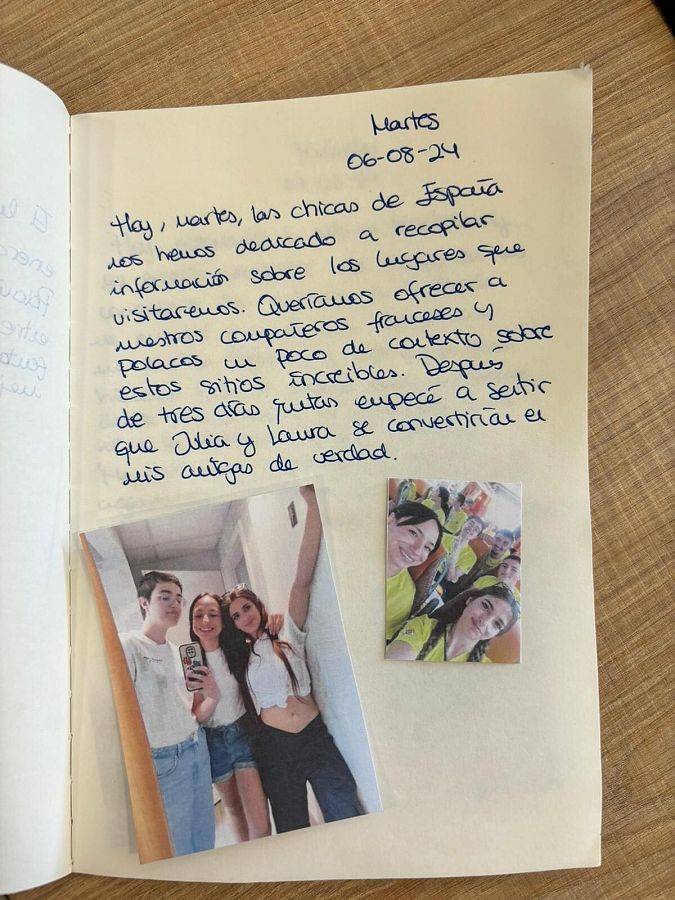 Martes
06-08-24
Hoy, martes, las chicas de España
nos hemos dedicado a recopilar
información sobre los lugares que
visitaremos. Queríamos ofrecer a
nuestros compañeros franceses y
polacos un poco de contexto sobre
estos sitios increíbles. Después
de tres días juntas empecé a sentir
que Julia y Laura se convertirían en
mis amigas de verdad.